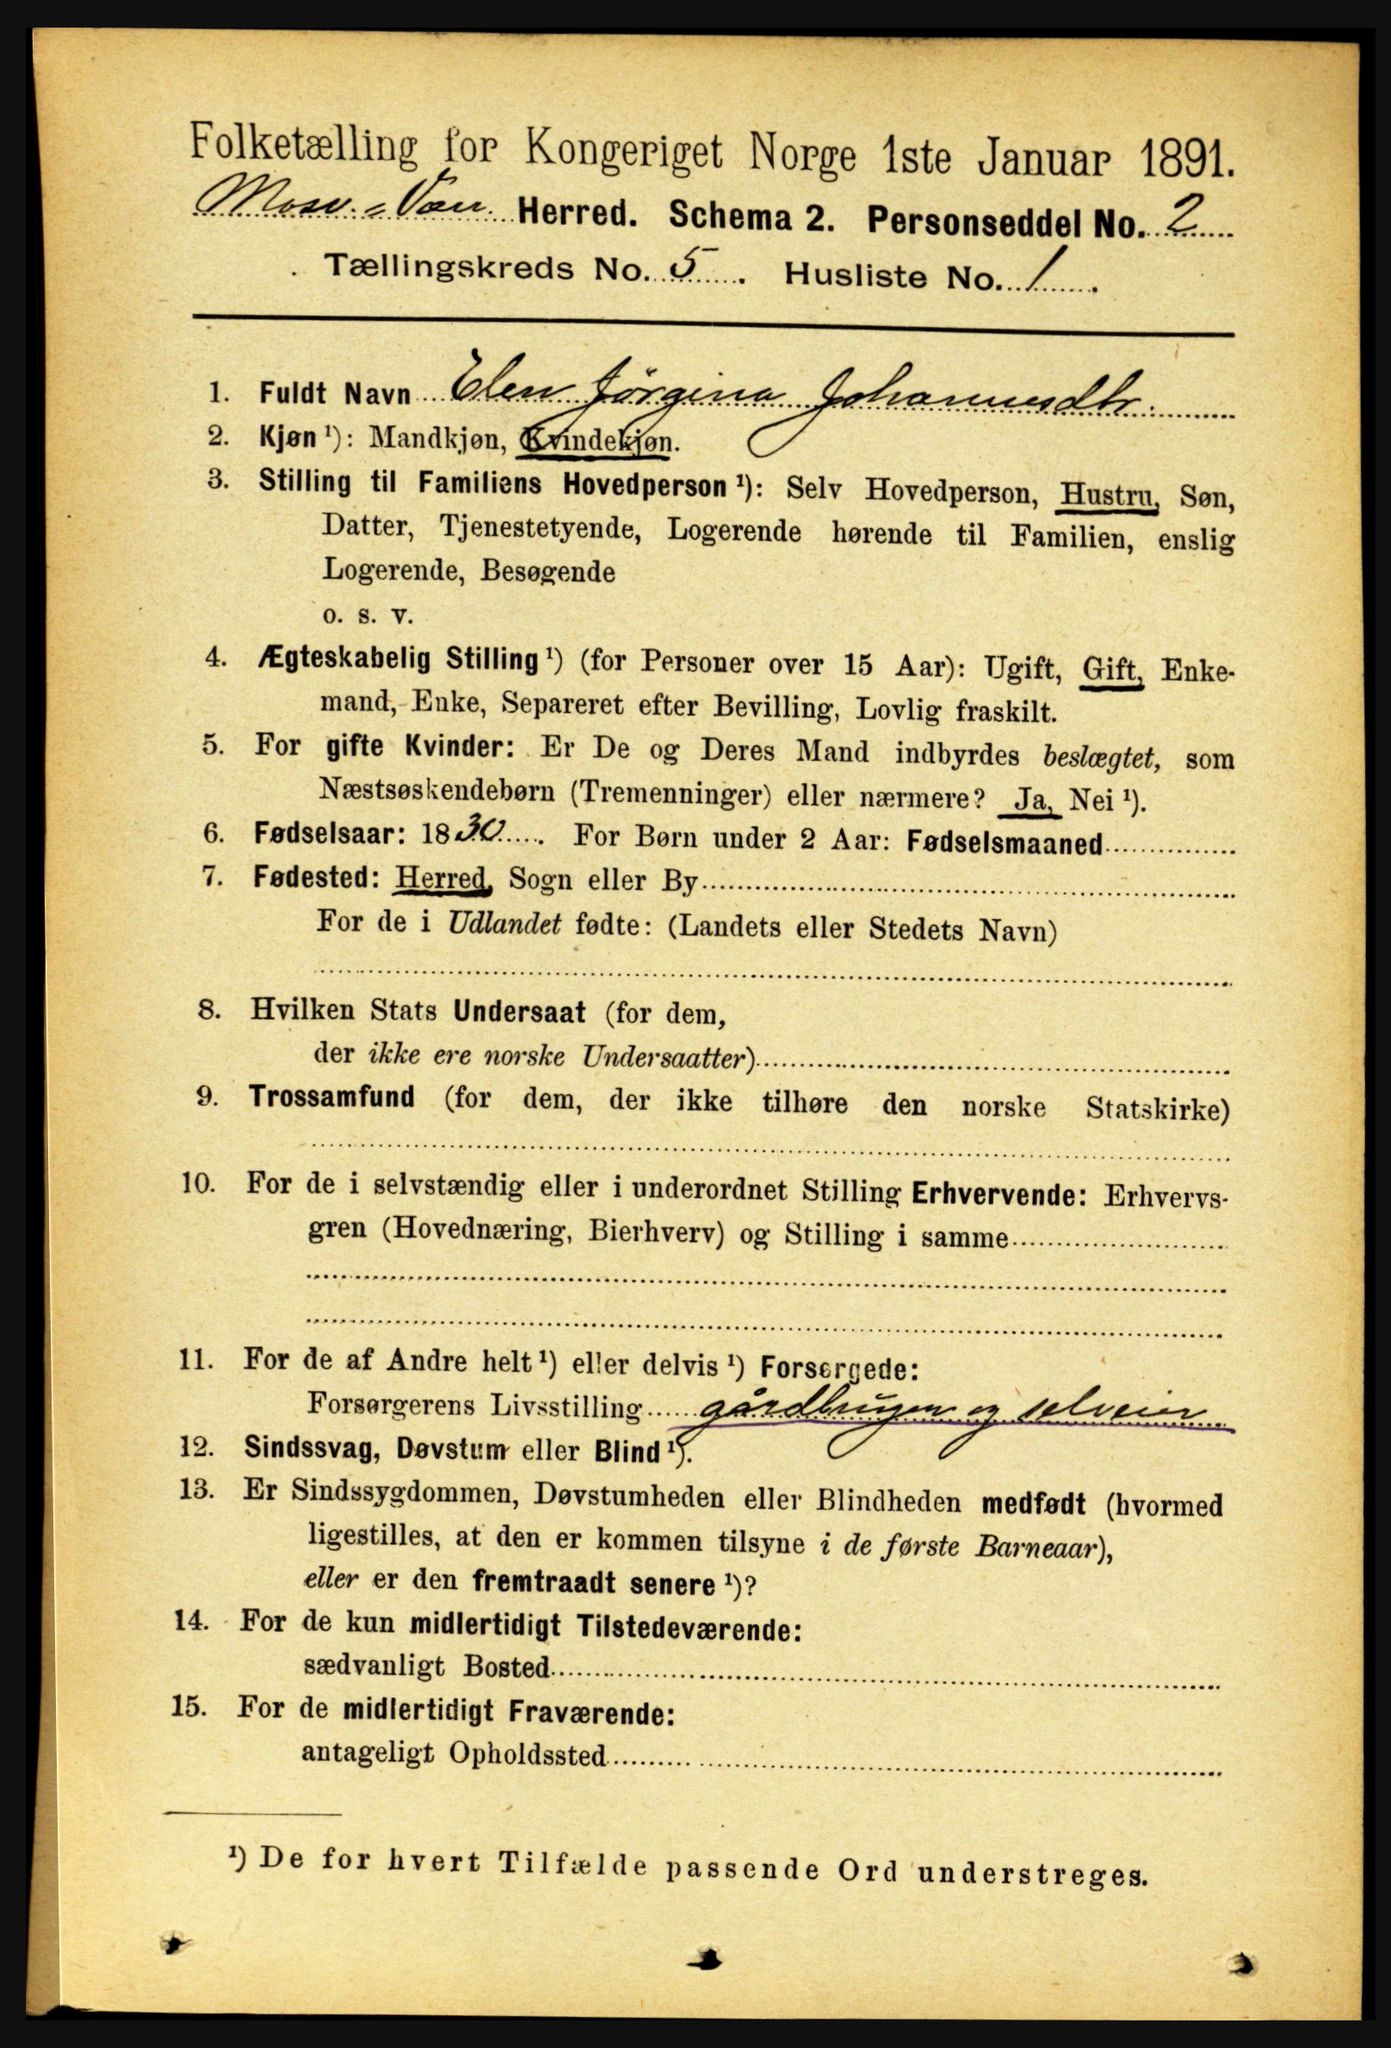 Folketælling for Kongeriget Norge 1ste Januar 1891.
Mosv. Herred. Schema 2. Personseddel No. 2
Tællingskreds No. 5. Husliste No. 1.
1. Fuldt Navn Elen Jørgina Johannesdtr.
2. Kjøn ¹): Mandkjøn, Kvindekjøn.
3. Stilling til Familiens Hovedperson ¹): Selv Hovedperson, Hustru, Søn,
Datter, Tjenestetyende, Logerende hørende til Familien, enslig
Logerende, Besøgende
o. s. v.
4. Ægteskabelig Stilling ¹) (for Personer over 15 Aar): Ugift, Gift, Enke-
mand, Enke, Separeret efter Bevilling, Lovlig fraskilt.
5. For gifte Kvinder: Er De og Deres Mand indbyrdes beslægtet, som
Næstsøskendebørn (Tremenninger) eller nærmere? Ja, Nei ¹).
6. Fødselsaar: 1830. For Børn under 2 Aar: Fødselsmaaned
7. Fødested: Herred, Sogn eller By
For de i Udlandet fødte: (Landets eller Stedets Navn)
8. Hvilken Stats Undersaat (for dem,
der ikke ere norske Undersaatter)
9. Trossamfund (for dem, der ikke tilhøre den norske Statskirke)
10. For de i selvstændig eller i underordnet Stilling Erhvervende: Erhvervs-
gren (Hovednæring, Bierhverv) og Stilling i samme
11. For de af Andre helt ¹) eller delvis ¹) Forsørgede:
Forsørgerens Livsstilling gårdbruger og selveier
12. Sindssvag, Døvstum eller Blind ¹).
13. Er Sindssygdommen, Døvstumheden eller Blindheden medfødt (hvormed
ligestilles, at den er kommen tilsyne i de første Barneaar),
eller er den fremtraadt senere ¹)?
14. For de kun midlertidigt Tilstedeværende:
sædvanligt Bosted
15. For de midlertidigt Fraværende:
antageligt Opholdssted
¹) De for hvert Tilfælde passende Ord understreges.